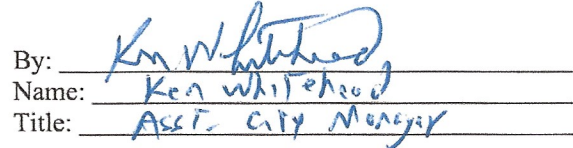 By: Ken Whitehead
Name: Ken Whitehead
Title: Asst. City Manager